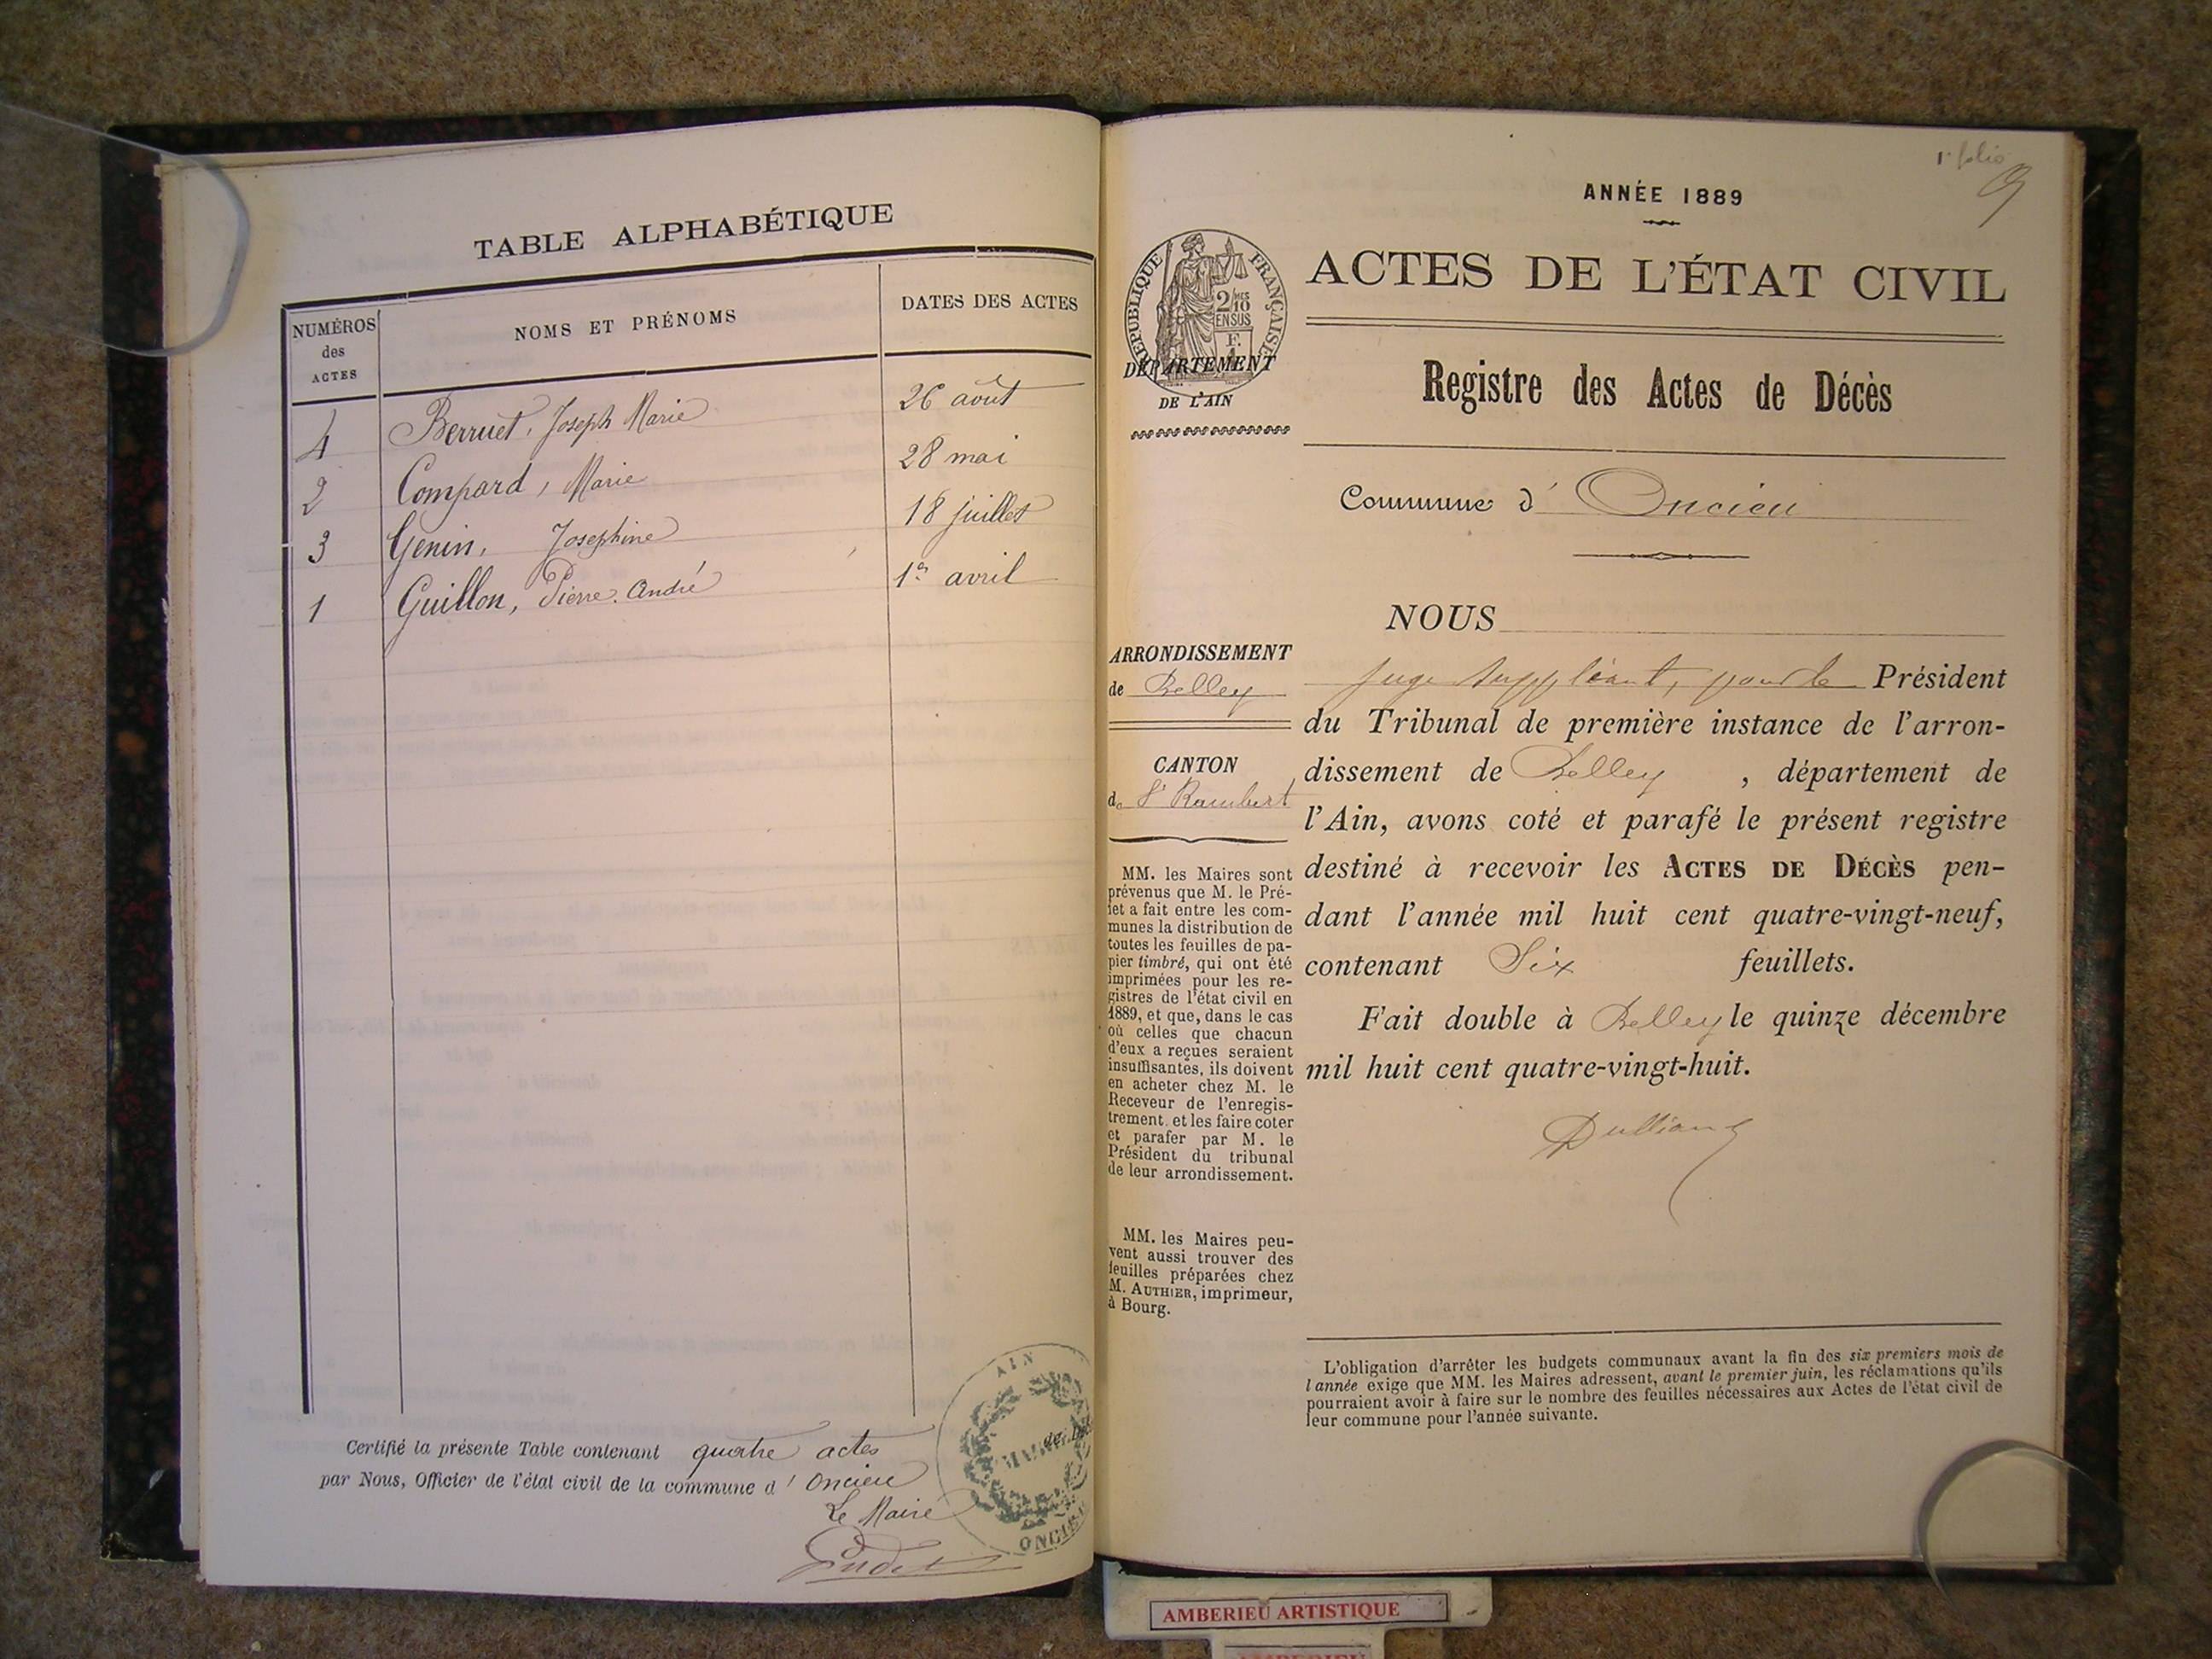 TABLE ALPHABÉTIQUE
NUMÉROS
des
ACTES
NOMS ET PRÉNOMS
DATES DES ACTES
4 Berruet, Joseph Marie 26 août
2 Compard, Marie 28 mai
3 Genin, Josephine 18 juillet
1 Guillon, Pierre André 1er avril
Certifié la présente Table contenant quatre actes
par Nous, Officier de l'état civil de la commune d'Oncieu
Le Maire
AIN
ONCIEU
1er folio
ANNÉE 1889
ACTES DE L'ÉTAT CIVIL
RÉPUBLIQUE FRANÇAISE
2/10mes
EN SUS
F.
DÉPARTEMENT
DE L'AIN
Registre des Actes de Décès
Commune d'Oncieu
ARRONDISSEMENT
de Belley
CANTON
de St Rambert
MM. les Maires sont
prévenus que M. le Pré-
fet a fait entre les com-
munes la distribution de
toutes les feuilles de pa-
pier timbré, qui ont été
imprimées pour les re-
gistres de l'état civil en
1889, et que, dans le cas
où celles que chacun
d'eux a reçues seraient
insuffisantes, ils doivent
en acheter chez M. le
Receveur de l'enregis-
trement et les faire coter
et parafer par M. le
Président du tribunal
de leur arrondissement.
MM. les Maires peu-
vent aussi trouver des
feuilles préparées chez
M. AUTHIER, imprimeur,
à Bourg.
NOUS
Juge suppléant, pour le Président
du Tribunal de première instance de l'arron-
dissement de Belley, département de
l'Ain, avons coté et parafé le présent registre
destiné à recevoir les ACTES DE DÉCÈS pen-
dant l'année mil huit cent quatre-vingt-neuf,
contenant Six feuillets.
Fait double à Belley le quinze décembre
mil huit cent quatre-vingt-huit.
L'obligation d'arrêter les budgets communaux avant la fin des six premiers mois de
l'année exige que MM. les Maires adressent, avant le premier juin, les réclamations qu'ils
pourraient avoir à faire sur le nombre des feuilles nécessaires aux Actes de l'état civil de
leur commune pour l'année suivante.
AMBERIEU ARTISTIQUE
AMBERIEU